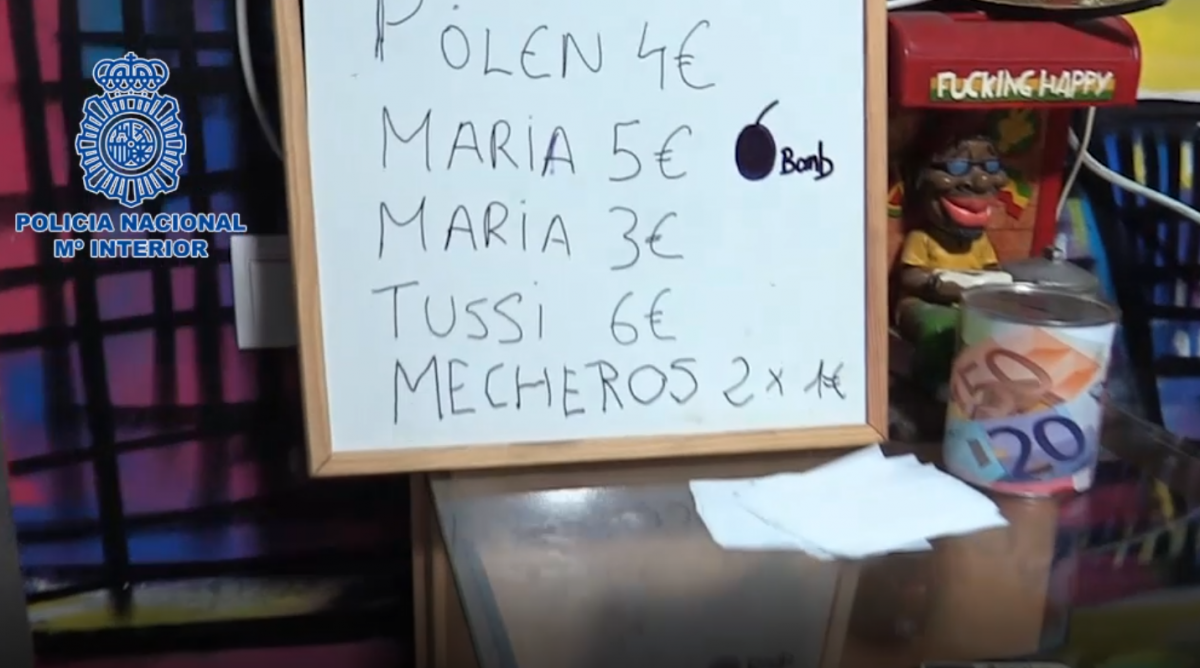 PÓLEN 4€
MARIA 5€ Bomb
MARIA 3€
TUSSI 6€
MECHEROS 2 x 1€
POLICIA NACIONAL
Mº INTERIOR
FUCKING HAPPY
50
20